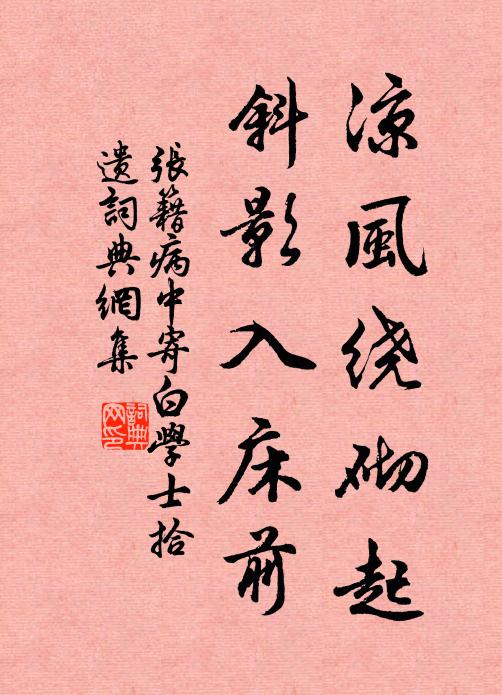 凉風绕砌起
斜影入床前
張籍病中寄白學士拾
遺詞典網集
詞典
网印